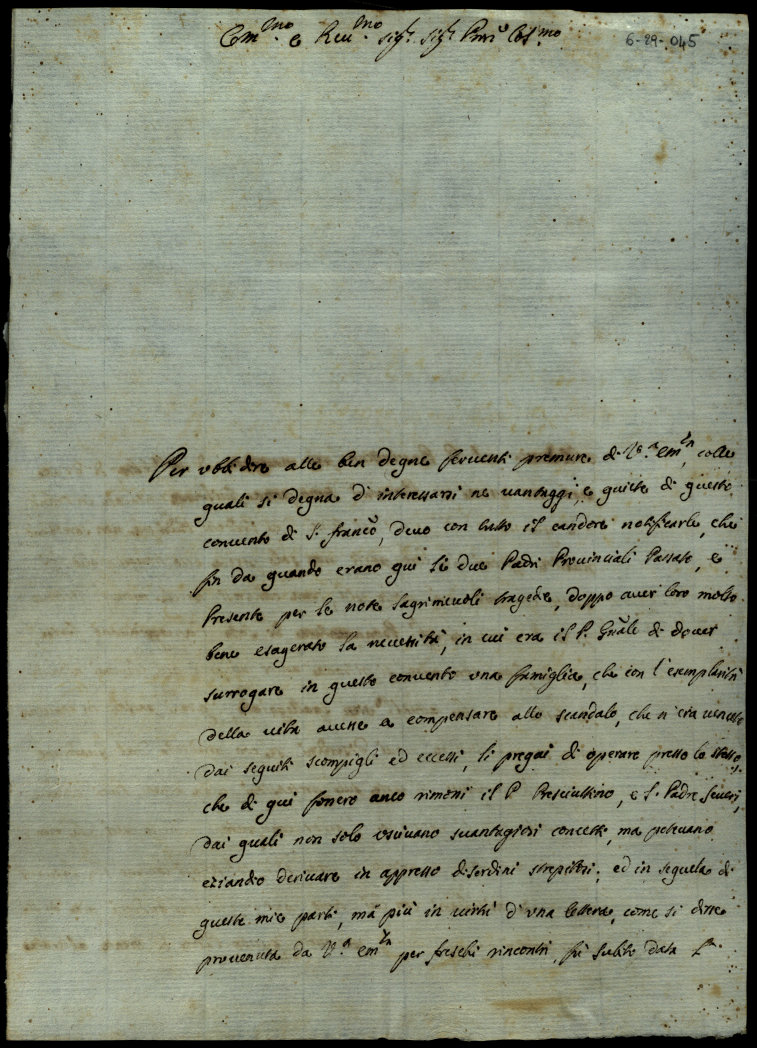 Em.mo e Reu.mo Sig.r Sig.r Prñ Col.mo
6-29-045
Per ubbidire alle ben degne feruenti premure di V.a Em.za, colle
quali si degna d'interessarsi ne uantaggi, e quiete di questo
conuento di S. Franco, deuo con tutto il candore notificarle, che
fin da quando erano qui li due Padri Prouinciali Passato, e
Presente per le note lagrimeuoli tragedie, doppo auer loro molto
bene esagerato la necessità, in cui era il P. Gñale di douer
surrogare in questo conuento una famiglia, che con l'esemplarità
della uita auesse a compensare allo scandalo, che n'era uenuto
dai seguiti scompigli ed eccessi, li pregai di operare presso lo stesso,
che di qui fossero anco rimossi il P. Presciuttino, e l. Padre Seueri,
dai quali non solo usciuano suantagiosi concetti, ma poteuano
eziandio deriuare in appresso disordini strepitosi; ed in seguela di
queste mie parti, mà più in uirtù d'una lettera, come si disse
prouenuta da V.a Em.za per freschi rincontri, fù subito data